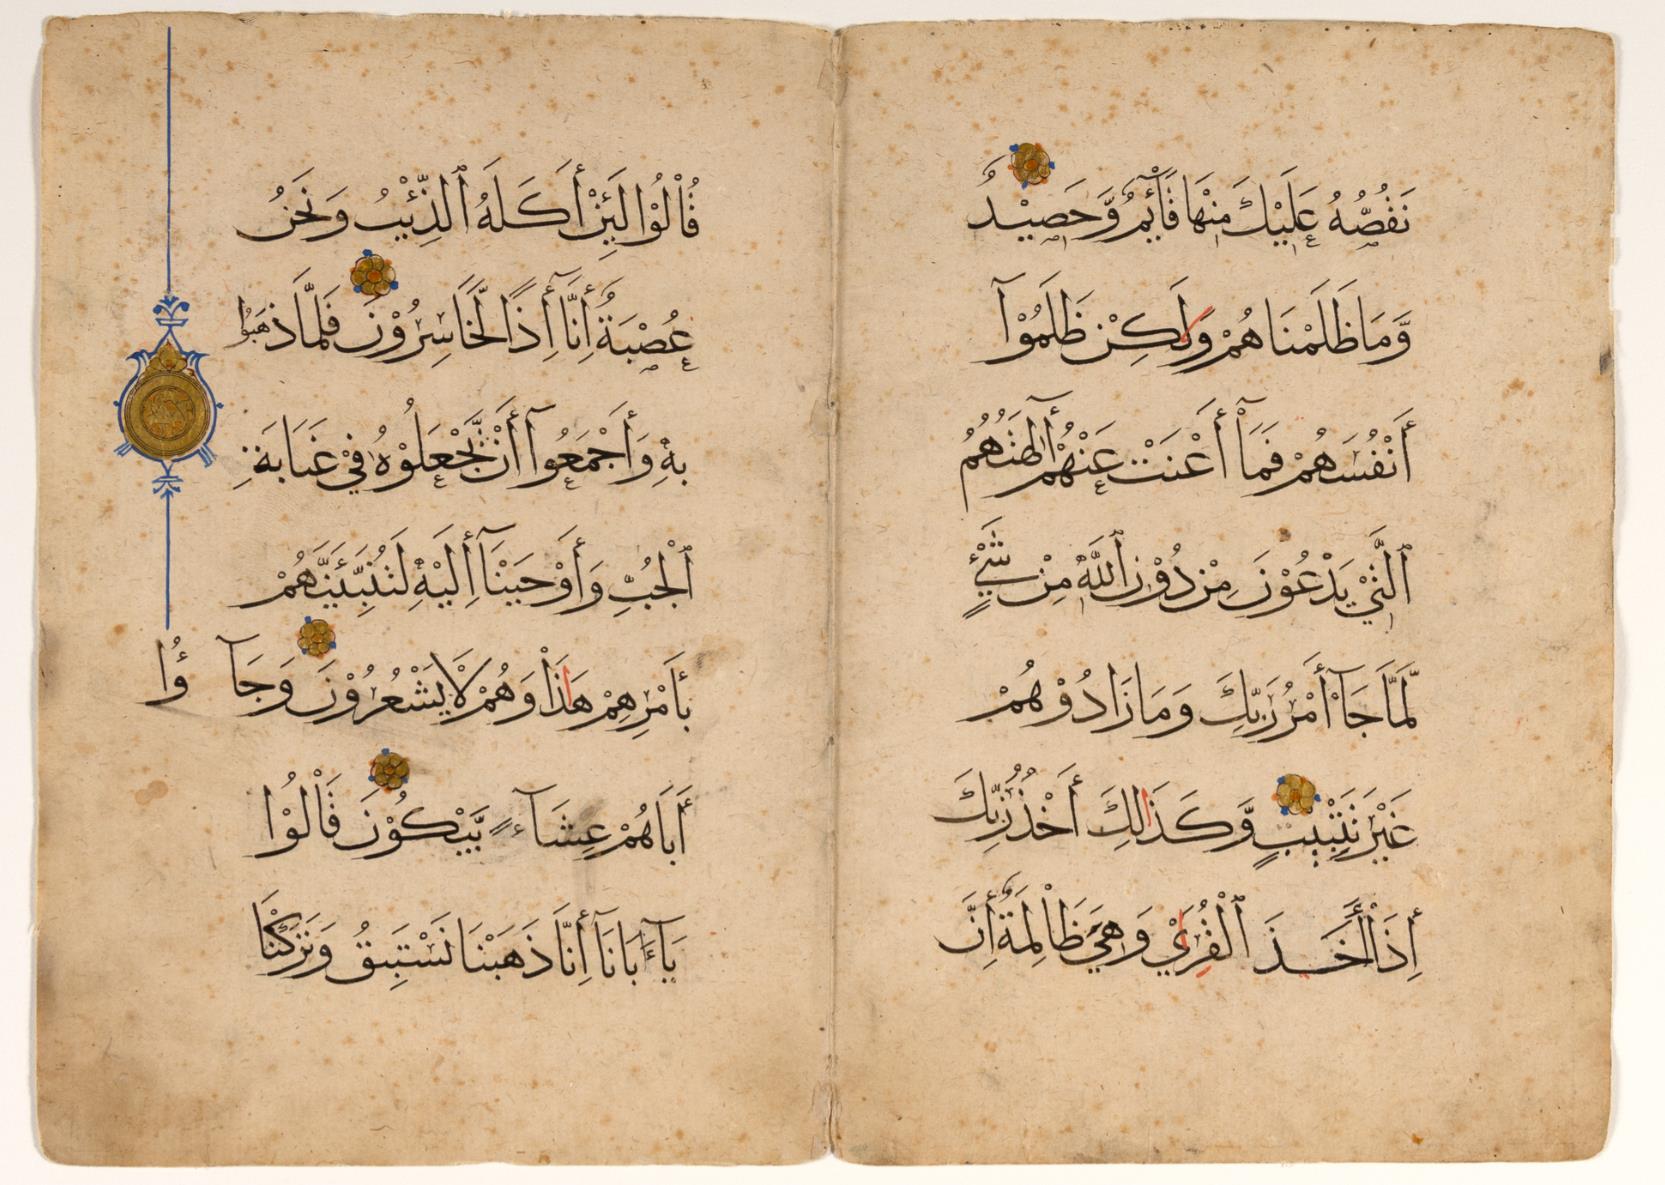 نَقُصُّهُ عَلَيْكَ مِنْهَا قَآئِمٌ وَّحَصِيْدٌ
وَّمَا ظَلَمْنَاهُمْ وَلَٰكِنْ ظَلَمُوْآ
أَنْفُسَهُمْ فَمَآ أَغْنَتْ عَنْهُمْ أٓلِهَتُهُمُ
ٱلَّتِيْ يَدْعُوْنَ مِنْ دُوْنِ ٱللَّهِ مِنْ شَيْءٍ
لَّمَّا جَآءَ أَمْرُ رَبِّكَ وَمَا زَادُوْهُمْ
غَيْرَ تَتْبِيْبٍ وَّكَذَٰلِكَ أَخْذُ رَبِّكَ
إِذَآ أَخَذَ ٱلْقُرَىٰ وَهِيَ ظَالِمَةٌ إِنَّ
قَالُوْا لَئِنْ أَكَلَهُ ٱلذِّئْبُ وَنَحْنُ
عُصْبَةٌ إِنَّآ إِذًا لَّخَاسِرُوْنَ فَلَمَّا ذَهَبُوْا
بِهٖ وَأَجْمَعُوْآ أَنْ يَّجْعَلُوْهُ فِيْ غَيَابَةِ
ٱلْجُبِّ وَأَوْحَيْنَآ إِلَيْهِ لَتُنَبِّئَنَّهُمْ
بِأَمْرِهِمْ هَٰذَا وَهُمْ لَا يَشْعُرُوْنَ وَجَآءُوْا
أَبَاهُمْ عِشَآءً يَّبْكُوْنَ قَالُوْا
يَآءَبَانَآ إِنَّا ذَهَبْنَا نَسْتَبِقُ وَتَرَكْنَا